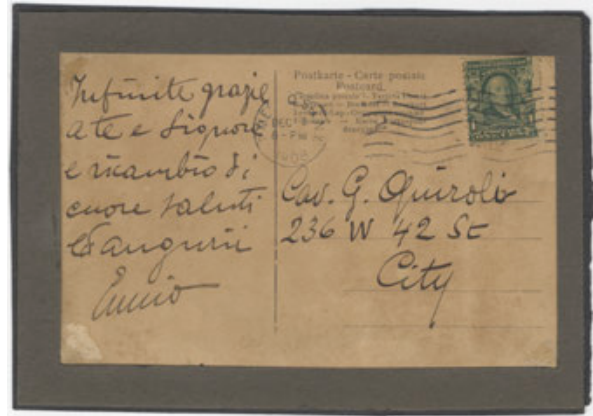 Infinite grazie
a te e Signora
e ricambio di
cuore saluti
ed auguri
Ennio
Postkarte - Carte postale
Postcard.
DEC
6 - PM
Cav. G. Quiroli
236 W 42 St
City